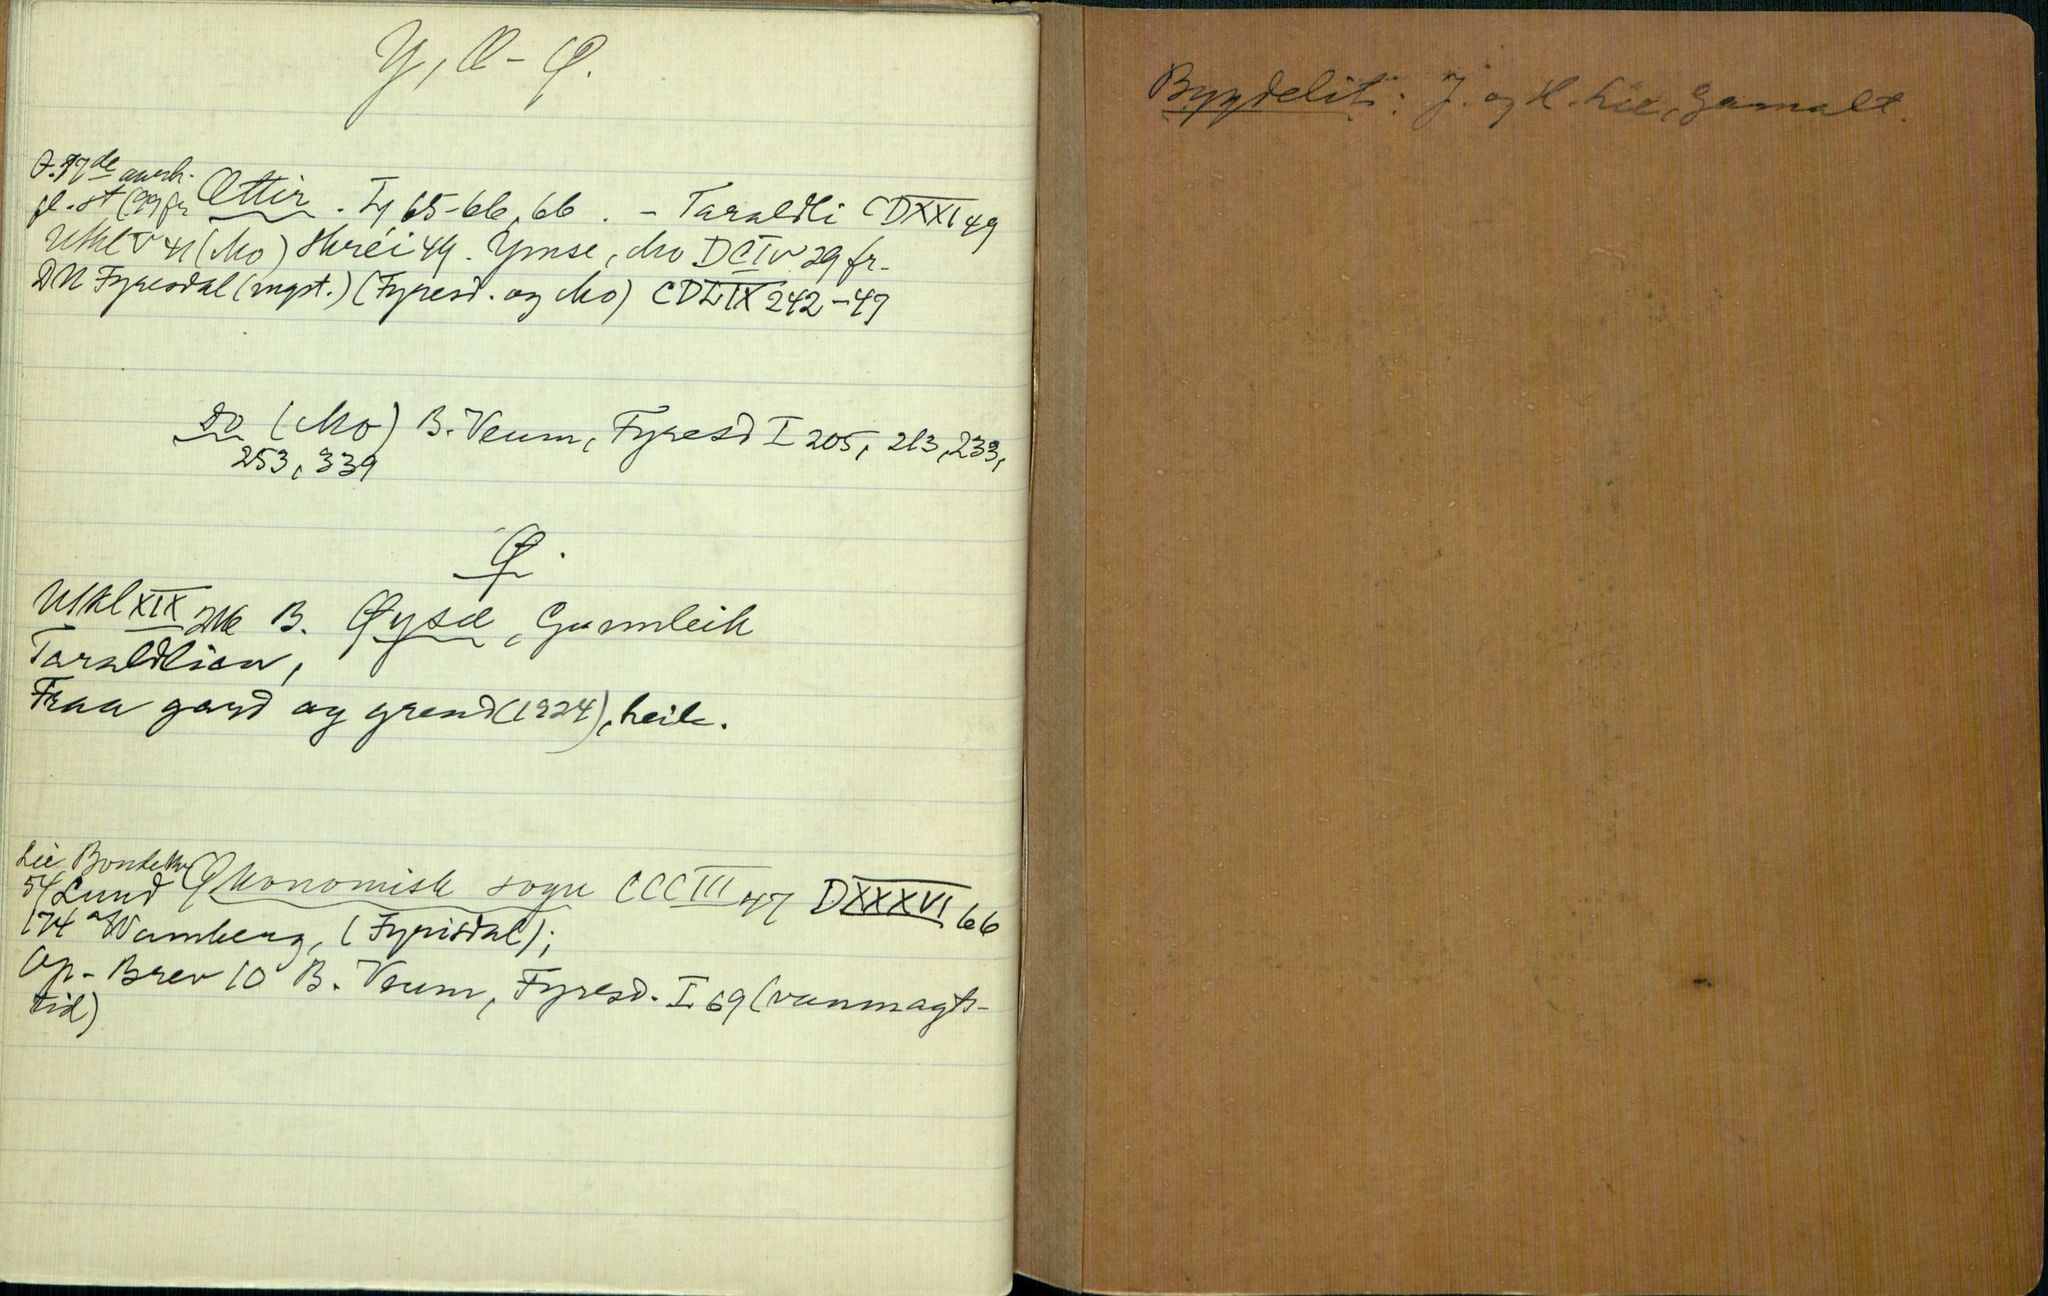 Y, Æ - Ø.
Ættir. I, 65-66, 66. - Taraldli CDXXI 49
Utkl V 41 (Mo) Skrei 49. Ymse, Mo DCIV 29 fr.
DN Fyresdal (mgst.) (Fyresd. og Mo) CDLIX 242-49
Do (Mo) B. Veum, Fyresd I 205, 213, 233,
253, 339
Ø.
Utkl XIX 216 B. Øysæ, Gunnleik
Taraldlien,
Fraa gard og grend (1924), heile.
Lie Bondekr
54 Lund Økonomisk sogu CCCIII 47 DXXXVI 66
174 af Wamberg, (Fyrisdal);
Op. Brev 10 B. Veum, Fyresd. I 69 (vanmagts-
tid)
Bygdelit: J. og H. Lie, Gamalt.